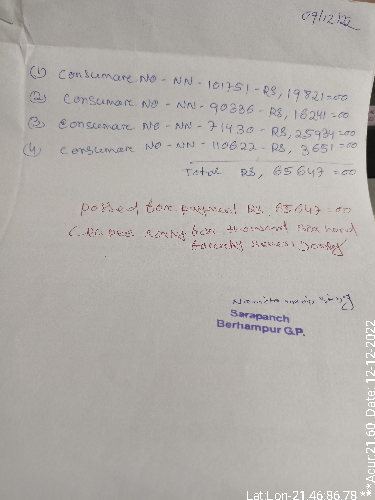 09/12/22
(1) Consumare NO - NN - 101751 - RS, 19821=00
(2) Consumare NO - NN - 90336 - RS, 16241=00
(3) Consumare NO - NN - 71430 - RS, 25934=00
(4) Consumare NO - NN - 110622 - RS, 3651=00
Total RS, 65647=00
passed for payment RS, 65647=00
thousand
Sarapanch
Berhampur G.P.
Lat:Lon-21.46:86.78 ***Acur:21.60 Date: 12-12-2022